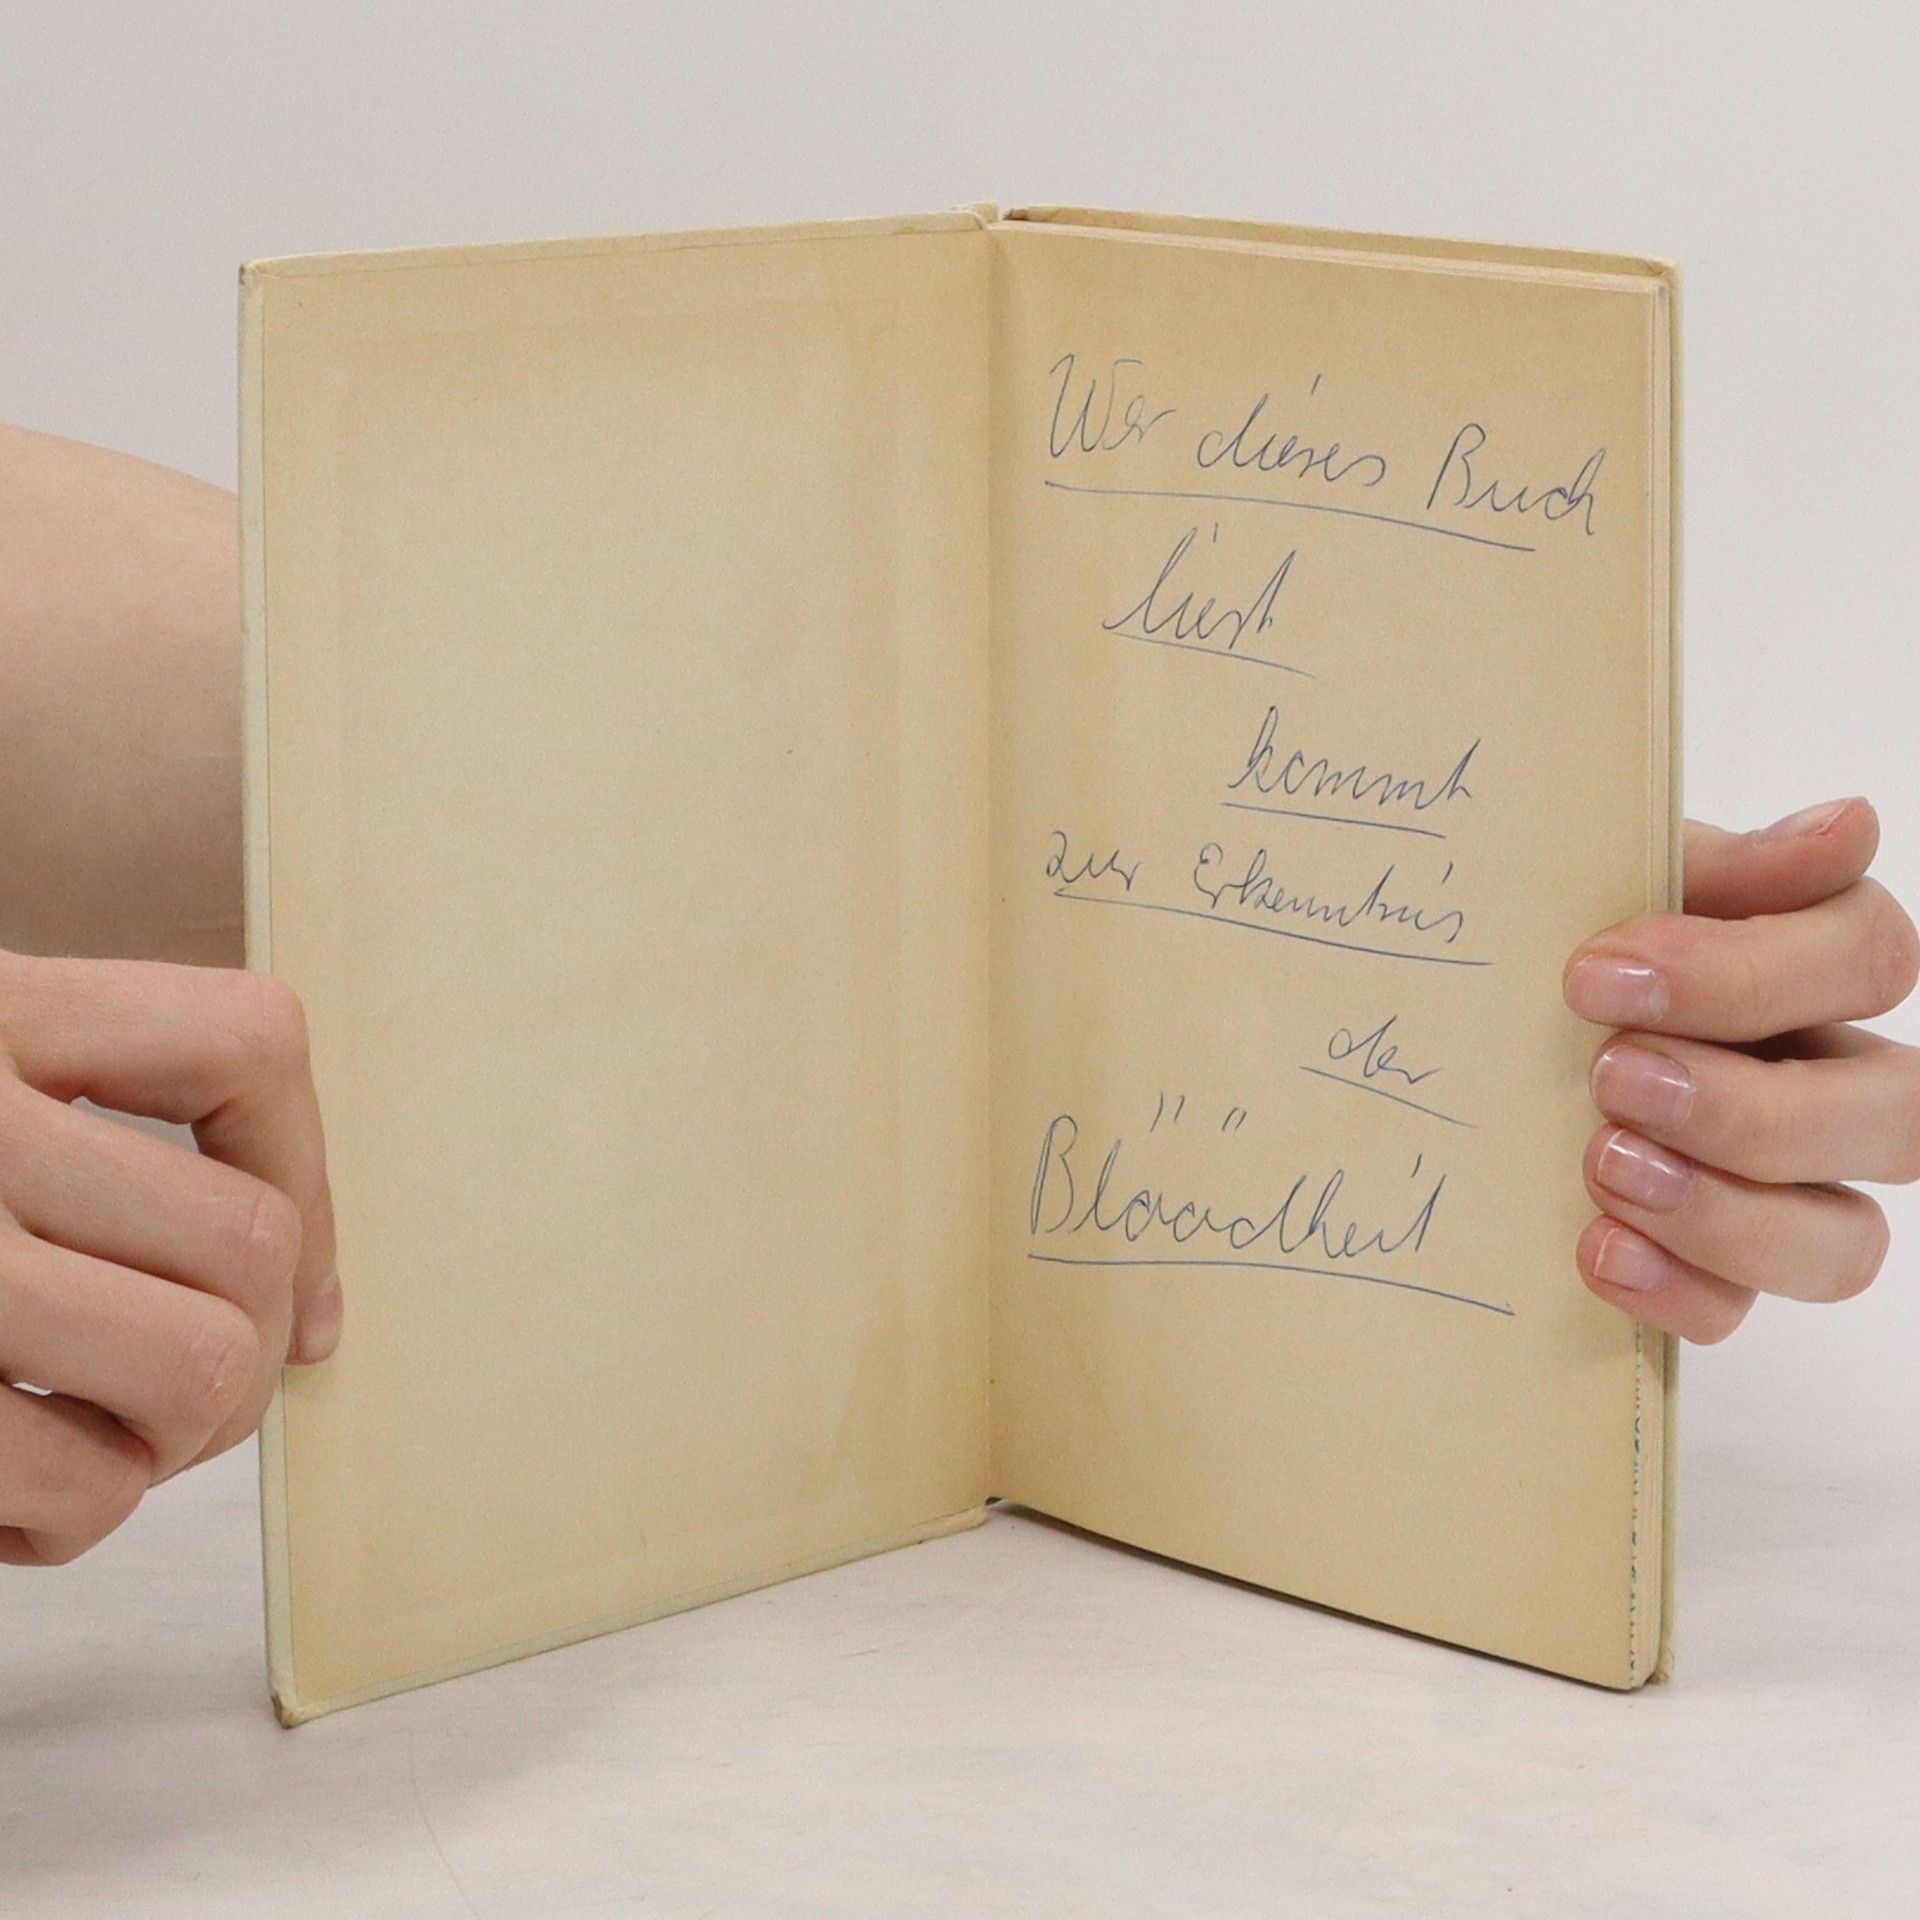 Wer dieses Buch
liest
kommt
zur Erkenntnis
der
Blöödheit